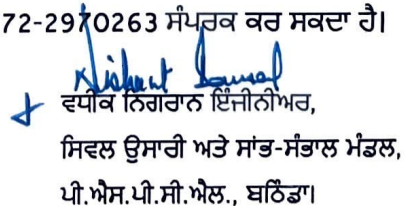 72-2970263 ਸੰਪਰਕ ਕਰ ਸਕਦਾ ਹੈ।
Nishant Bansal
ਵਧੀਕ ਨਿਗਰਾਨ ਇੰਜੀਨੀਅਰ,
ਸਿਵਲ ਉਸਾਰੀ ਅਤੇ ਸਾਂਭ-ਸੰਭਾਲ ਮੰਡਲ,
ਪੀ.ਐਸ.ਪੀ.ਸੀ.ਐਲ., ਬਠਿੰਡਾ।